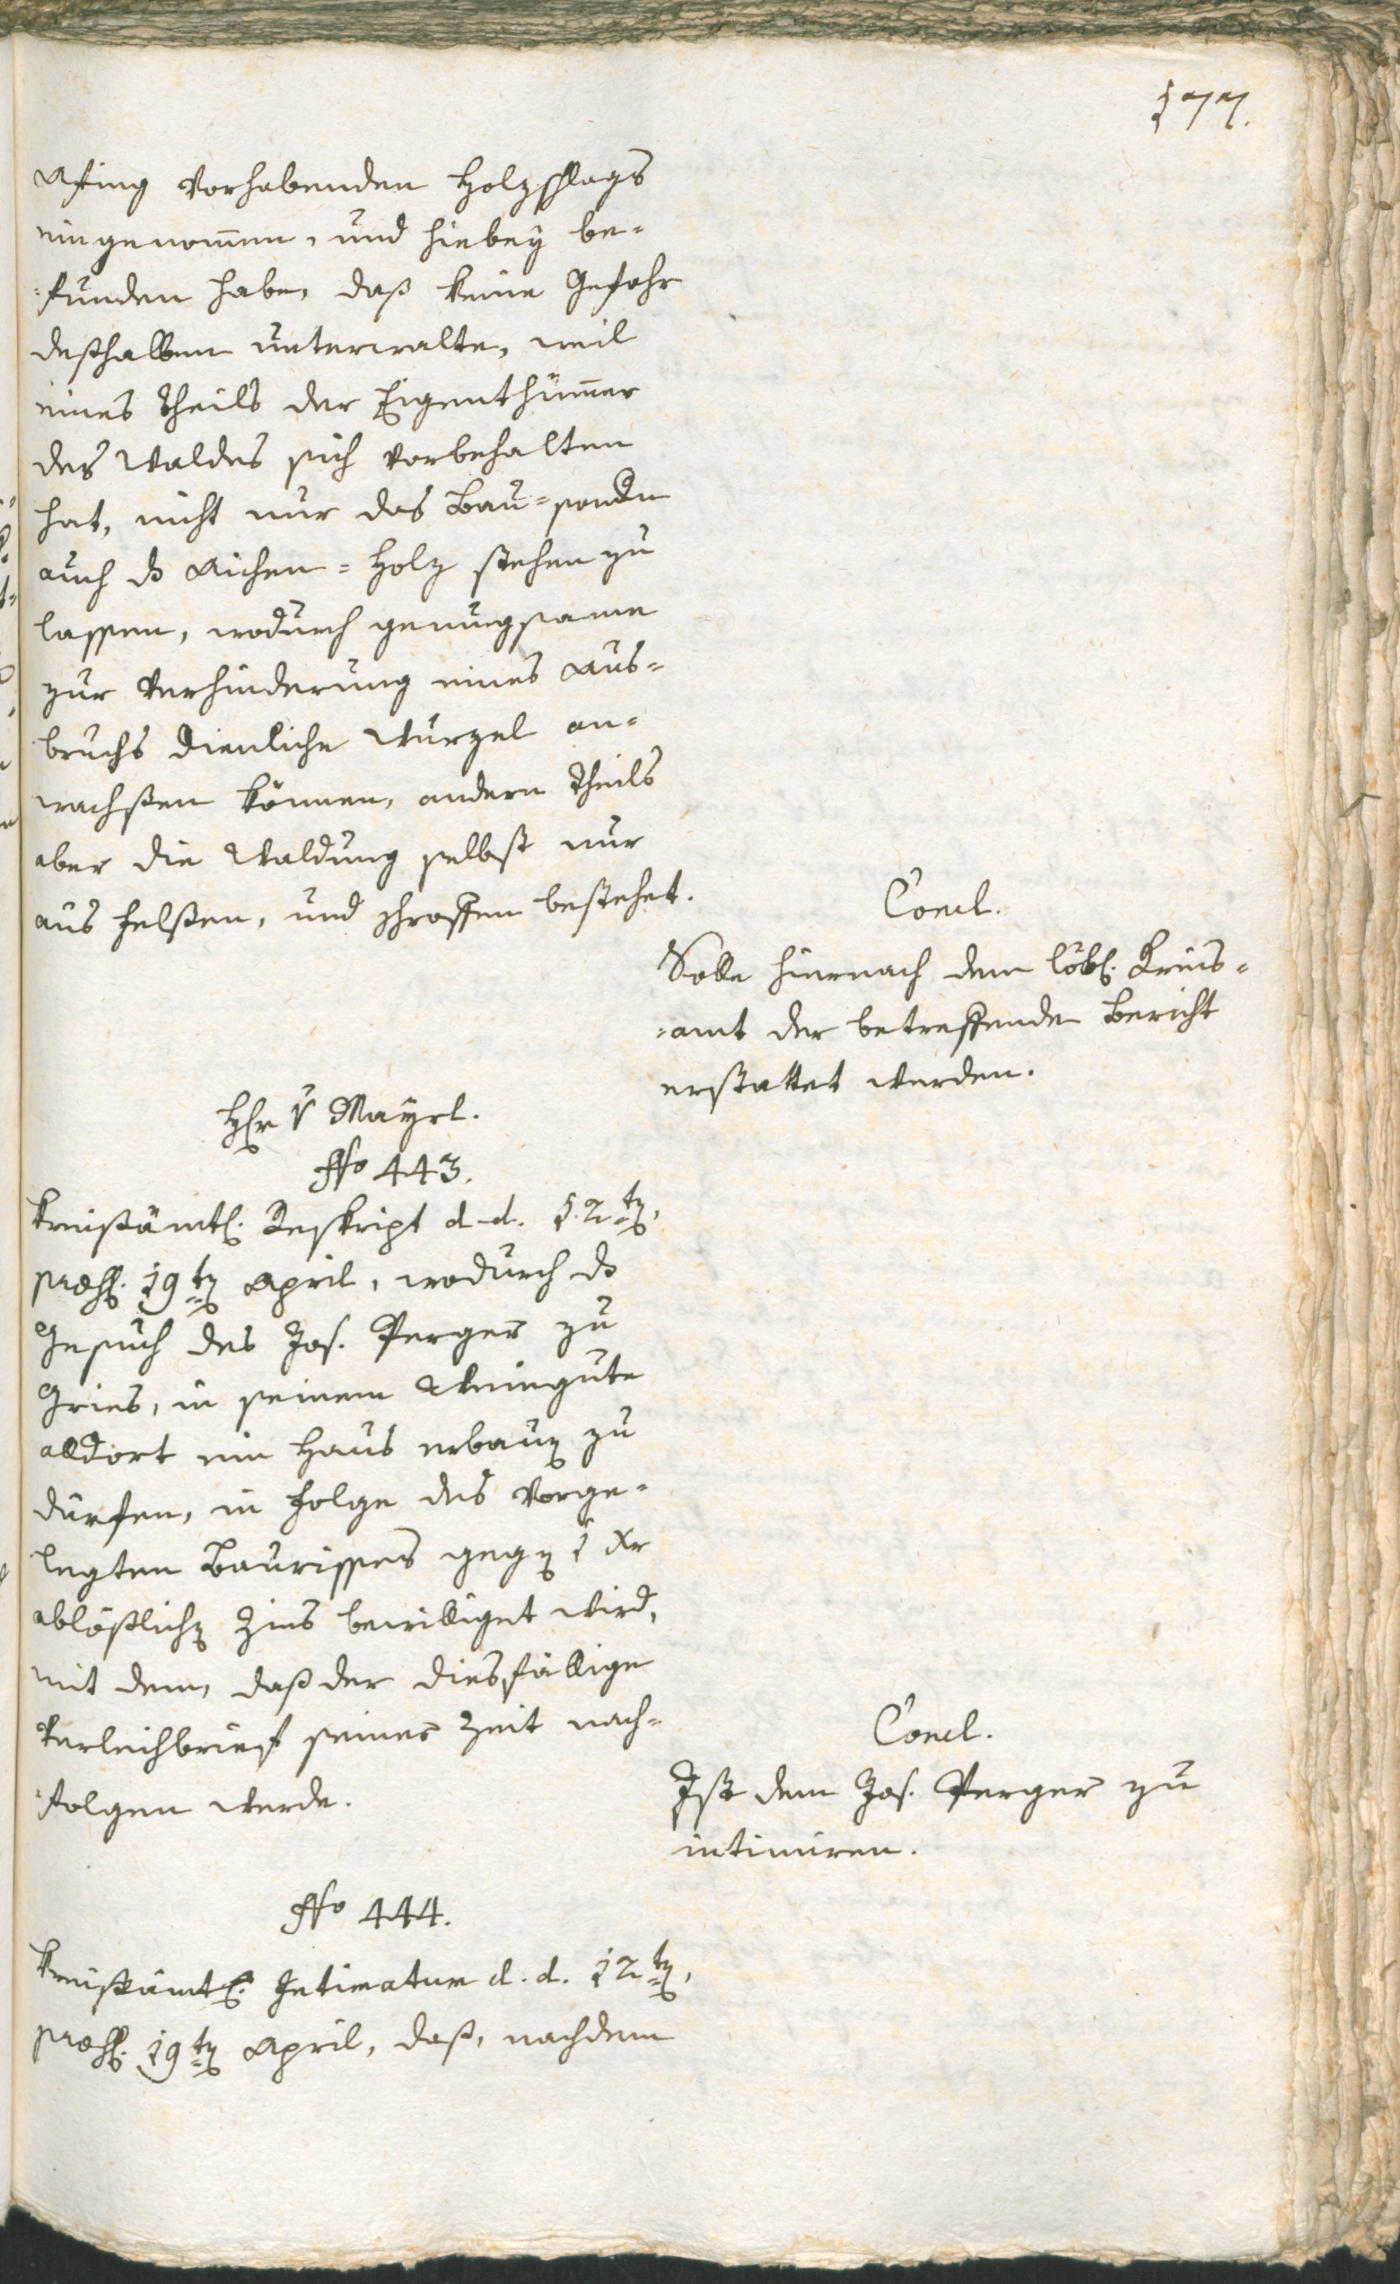 177.
Afing vorhabenden Holzschlags
eingenommen, und hiebey be=
=funden habe, daß keine Gefahr
deßhalben unterwalte, weil
eines Theils der Eigenthümmer
des Waldes sich vorbehalten
hat, nicht nur das Bau= sondern
auch das Aichen=Holz stehen zu
lassen, wodurch genugsamme
zur Verhinderung eines Aus=
bruchs dienliche Wurzel an=
wachßen können, andern Theils
aber die Waldung selbst nur
aus Felßen, und Schroffen bestehet.
Concl.
Solle hiernach dem löbl. Kreis=
=amt der betreffende Bericht
erstattet werden.
Hr v Mayrl.
No 443.
Kreißämtl. Reskript d. d. 12ten,
præs. 19ten April, wodurch das
Gesuch des Jos. Perger zu
Gries, in seinem Weingute
alldort ein Haus erbauen zu
därfen, in Folge des vorge=
legten Baurisses gegen 1 Xr
ablößlichen Zins bewilliget wird,
mit dem, daß der diesfällige
Verleichbrief seiner Zeit nach=
=folgen werde.
Concl.
Ist dem Jos. Perger zu
intimiren.
No 444.
Kreißämtl. Intimatum d. d. 12ten,
præs. 19ten April, daß, nachdem